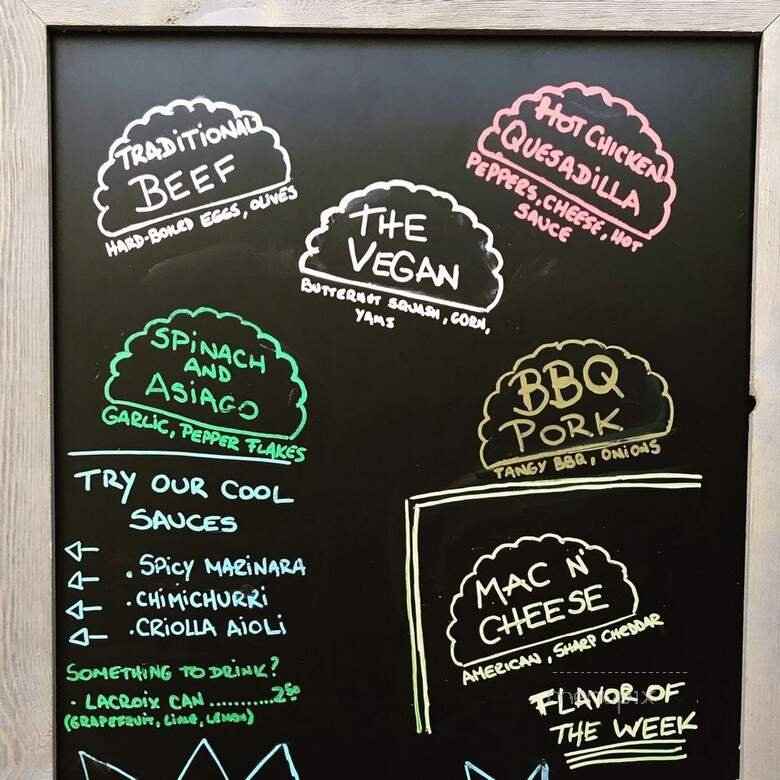 TRADITIONAL
BEEF
HARD-BOILED EGGS, OLIVES
HOT CHICKEN
QUESADILLA
PEPPERS, CHEESE, HOT
SAUCE
THE
VEGAN
BUTTERNUT SQUASH, CORN,
YAMS
SPINACH
AND
ASIAGO
GARLIC, PEPPER FLAKES
BBQ
PORK
TANGY BBQ, ONIONS
TRY OUR COOL
SAUCES
. SPICY MARINARA
. CHIMICHURRI
. CRIOLLA AIOLI
SOMETHING TO DRINK?
. LACROIX CAN ........... 2.50
(GRAPEFRUIT, LIME, LEMON)
MAC N'
CHEESE
AMERICAN, SHARP CHEDDAR
FLAVOR OF
THE WEEK